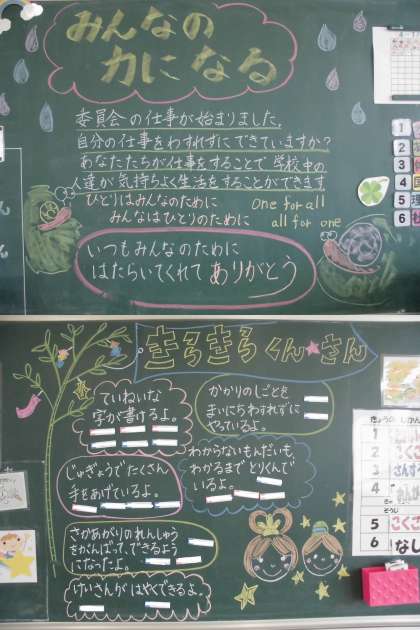 みんなの
力になる
委員会の仕事が始まりました。
自分の仕事をわすれずにできていますか?
あなたたちが仕事をすることで学校中の
人達が気持ちよく生活をすることができます
ひとりはみんなのために one for all
みんなはひとりのために all for one
いつもみんなのために
はたらいてくれてありがとう
きらきらくん★さん
ていねいな
字が書けるよ。
かかりのしごとを
まいにちわすれずに
やっているよ。
じゅぎょうでたくさん
手をあげているよ。
わからないもんだいも、
わかるまでとりくんで
いるよ。
さかあがりのれんしゅう
をがんばって、できるよう
になったよ。
けいさんがはやくできるよ。
きょうのじかん
1
2 こくご
3 さんすう
4
そうじ
5 こくご
6 なし
1
2
3
4
5
6